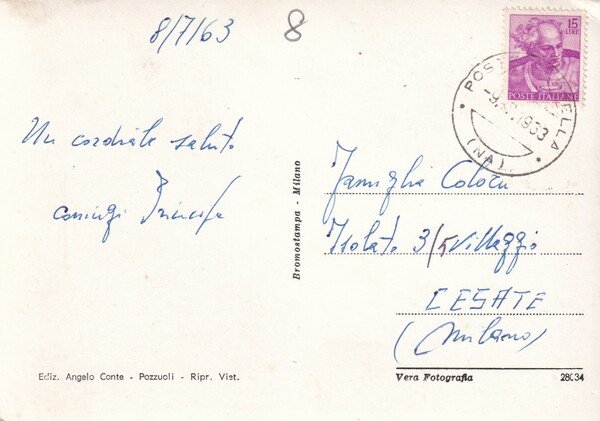 8/7/63
8
15
LIRE
POSTE ITALIANE
-9.
1963
(NA)
Un cordiale saluto
coniugi
Famiglia
Isolato 3/5 Villaggio
CESATE
(Milano)
Bromostampa - Milano
Ediz. Angelo Conte - Pozzuoli - Ripr. Viet.
Vera Fotografia
28034